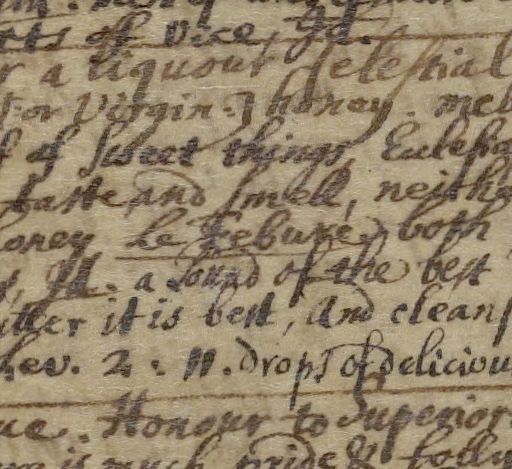 tts of vice, Id.
r a liquour Celestial
or Virgin honey. mel
of select things, Euleha
taste and smell, neithe
honey Le Febure both
Id. a sound of the best
itter it is best, and cleans
hev. 2. 11. drops of deliciou
ue. Honour to Superior
is much pride & folly